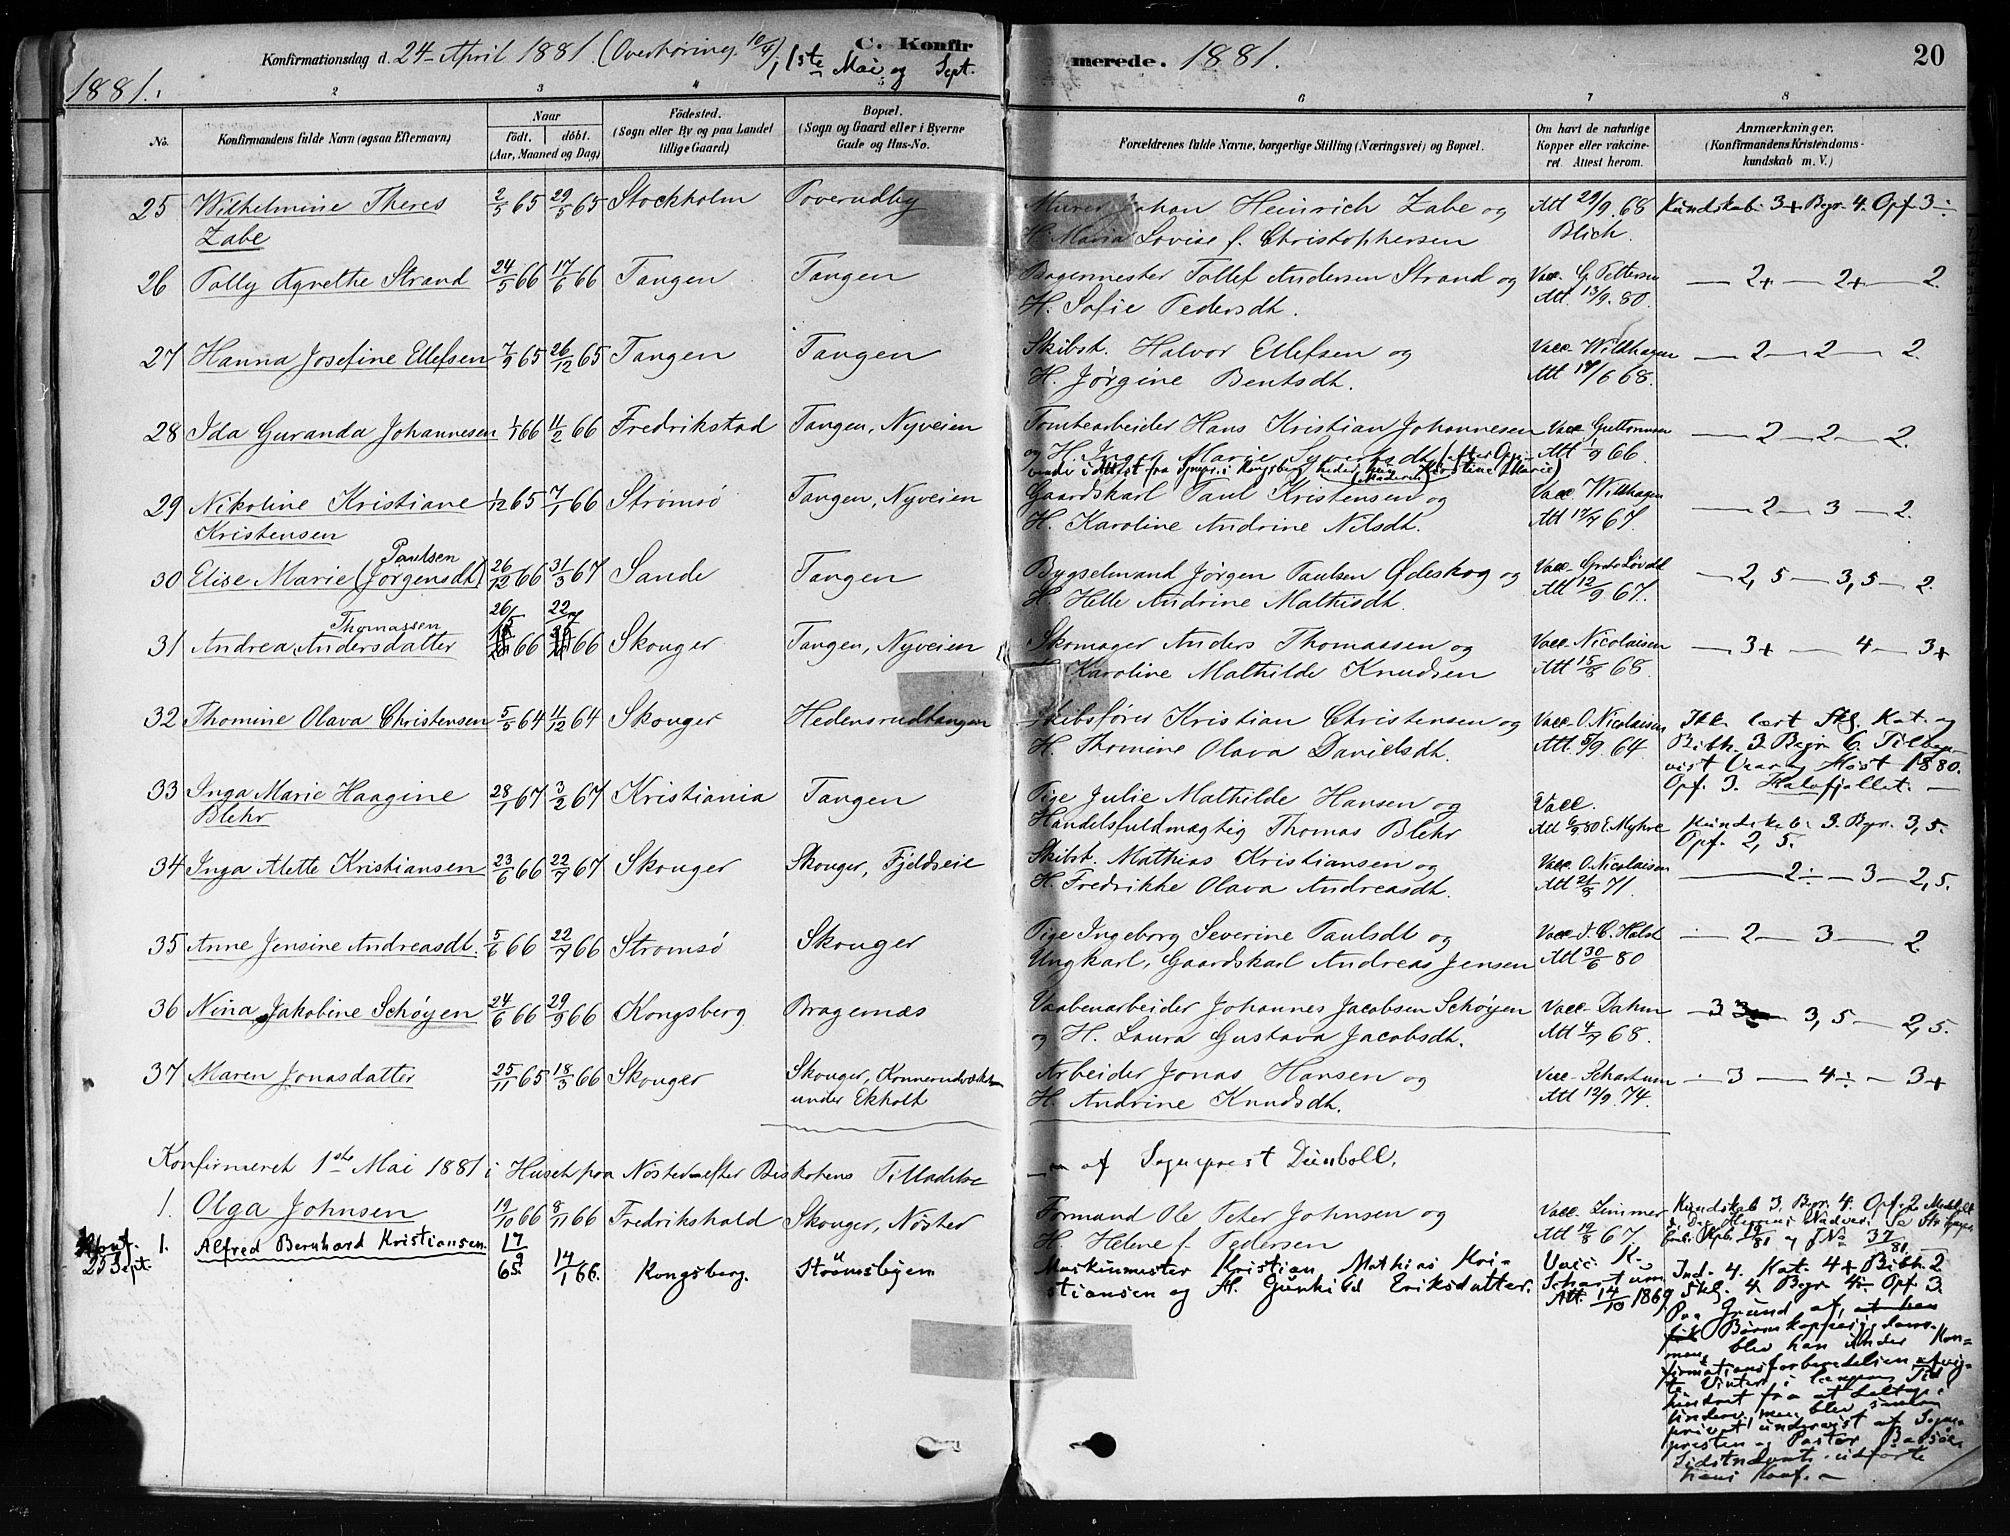 Konfirmationsdag d. 24 April 1881. (Overhøring 10/4), 1ste Mai og Sept.
C. Konfirmerede. 1881. 20
1881.
2 3 4 5 6 7 8
No. Konfirmandens fulde Navn (ogsaa Efternavn) Naar født. døbt. (Aar, Maaned og Dag) Fødested. (Sogn eller By og paa Landet tillige Gaard) Bopæl. (Sogn og Gaard eller i Byerne Gade og Hus-No. Forældrenes fulde Navne, borgerlige Stilling (Næringsvei) og Bopæl. Om havt de naturlige Kopper eller vakcineret. Attest herom. Anmærkninger. (Konfirmandens Kristendomskundskab m. V.)
25 Wilhelmine Theres 2/5 65 29/5 65 Stockholm Poverudby Murer Johan Heinrich Zabe og Att 29/9 68 Kundskab 3+ Begr. 4. Opf. 3÷
Zabe H. Maria Lovise f. Christophersen Blich.
26 Polly Agnethe Strand 24/5 66 17/6 66 Tangen Tangen Bagermester Tollef Andersen Strand og Vacc. G. Pettersen — 2+ — 2+ — 2.
H. Sofie Pedersdt. Att. 13/9. 80.
27 Hanna Josefine Ellefsen 7/9 65 26/12 65 Tangen Tangen Skibst. Halvor Ellefsen og Vacc. Wildhagen — 2 — 2 — 2.
H. Jørgine Bentsdt. Att 14/6 68.
28 Ida Guranda Johannesen 1/1 66 11/2 66 Fredrikstad Tangen, Nyveien Tomtearbeider Hans Kristian Johannesen Vacc Guttormsen — 2 — 2 — 2.
og H. Inger Marie Syvertsdt. Att 1/9 66.
29 Nikoline Kristiane 1/12 65 7/1 66 Strømsø Tangen, Nyveien Gaardskarl Paul Kristensen og Vacc Wildhagen — 2 — 3 — 2.
Kristensen H. Karoline Andrine Nilsdt. Att 12/7 67.
Paulsen
30 Elise Marie (Jørgensdt) 26/12 66 31/3 67 Sande Tangen Bygselmand Jørgen Paulsen Ødeskog og — 2,5 — 3,5 — 2.
H. Helle Andrine Mathisdt. Att 12/9 67.
Thomassen 26/5 22/7
31 Andrea Andersdatter 66 66 Skouger Tangen, Nyveien Skomager Anders Thomassen og Vacc Nicolaisen — 3+ — 4 — 3+
Karoline Mathilde Knudsen Att 15/8 68.
32 Thomine Olava Christensen 5/5 64 11/12 64 Skouger Hedensrudtangen Skibsfører Kristian Christensen og Vacc. O. Nicolaisen Ikke lært Skj. Kat. og
H. Thomine Olava Davidsdt. Att. 5/9. 64. Bibh. 3. Begr. 6. Tilbagevist Vaar og Høst 1880.
Opf. 3. Halvfjollet. —
33 Inga Marie Haagine 28/1 67 3/2 67 Kristiania Tangen Pige Julie Mathilde Hansen og Vacc.
Blehr Handelsfuldmægtig Thomas Blehr Att 6/9 80 E. Myhre Kundskab: 3. Begr. 3,5.
Opf. 2,5.
34 Inga Alette Kristiansen 23/6 66 22/7 67 Skouger Skouger, Fjeldseie Skibst. Mathias Kristiansen og Vacc. O. Nicolaisen — 2÷ — 3 — 2,5.
H. Fredrikke Olava Andreasdt. Att 21/5 71.
35 Anne Jensine Andreasdt. 5/6 66 22/7 66 Strømsø Skouger Pige Ingeborg Severine Paulsdt og Vacc J. C. Holst — 2 — 3 — 2.
Ungkarl, Gaardskarl Andreas Jensen Att 30/6 80
36 Nina Jakobine Schøyen 24/6 66 29/9 66 Kongsberg Bragernæs Vaabenarbeider Johannes Jacobsen Schøyen Vacc. Dahm — 3 — 3,5 — 2,5.
og H. Laura Gustava Jacobsdt. Att 4/7 68.
37 Maren Jonasdatter 25/11 65 18/3 66 Skouger Skouger, Konnerud Arbeider Jonas Hansen og Vacc. Schartum — 3 — 4÷ — 3+
under Ekholt H. Andrine Knudsdt. Att 12/9. 74.
Konfirmeret 1ste Mai 1881 i Huset paa Nøsted efter Biskopens Tilladelse af Sogneprest Dunboll.
1. Olga Johnsen 19/10 66 8/11 66 Fredrikshald Skouger, Nøsted Formand Ole Peter Johnsen og Vacc. Zimmer Kundskab 3, Begr. 4. Opf. 2
H. Helene f. Pedersen Att 19/8 67.
Konf. 25 Sept. 1. Alfred Bernhard Kristiansen. 17/9 65 14/1 66. Kongsberg. Strømsbyen Maskinmester Kristian Mathias Kristiansen og H. Gunhild Eriksdatter. Vacc. K. Schartum Att. 14/10 1869. Ind. 4. Kat. 4+ Bibh. 2
Skj. 4. Begr. 4÷ Opf. 3.
Paa Grund af, at han
Børnekopper
blev han under Konfirmationsforberedelsen
Vinter i længere Tid
hindret fra at deltage i
Undervisn. men blev
privat undervist af Sognepresten og Pastor
udførte
hans Konf. —